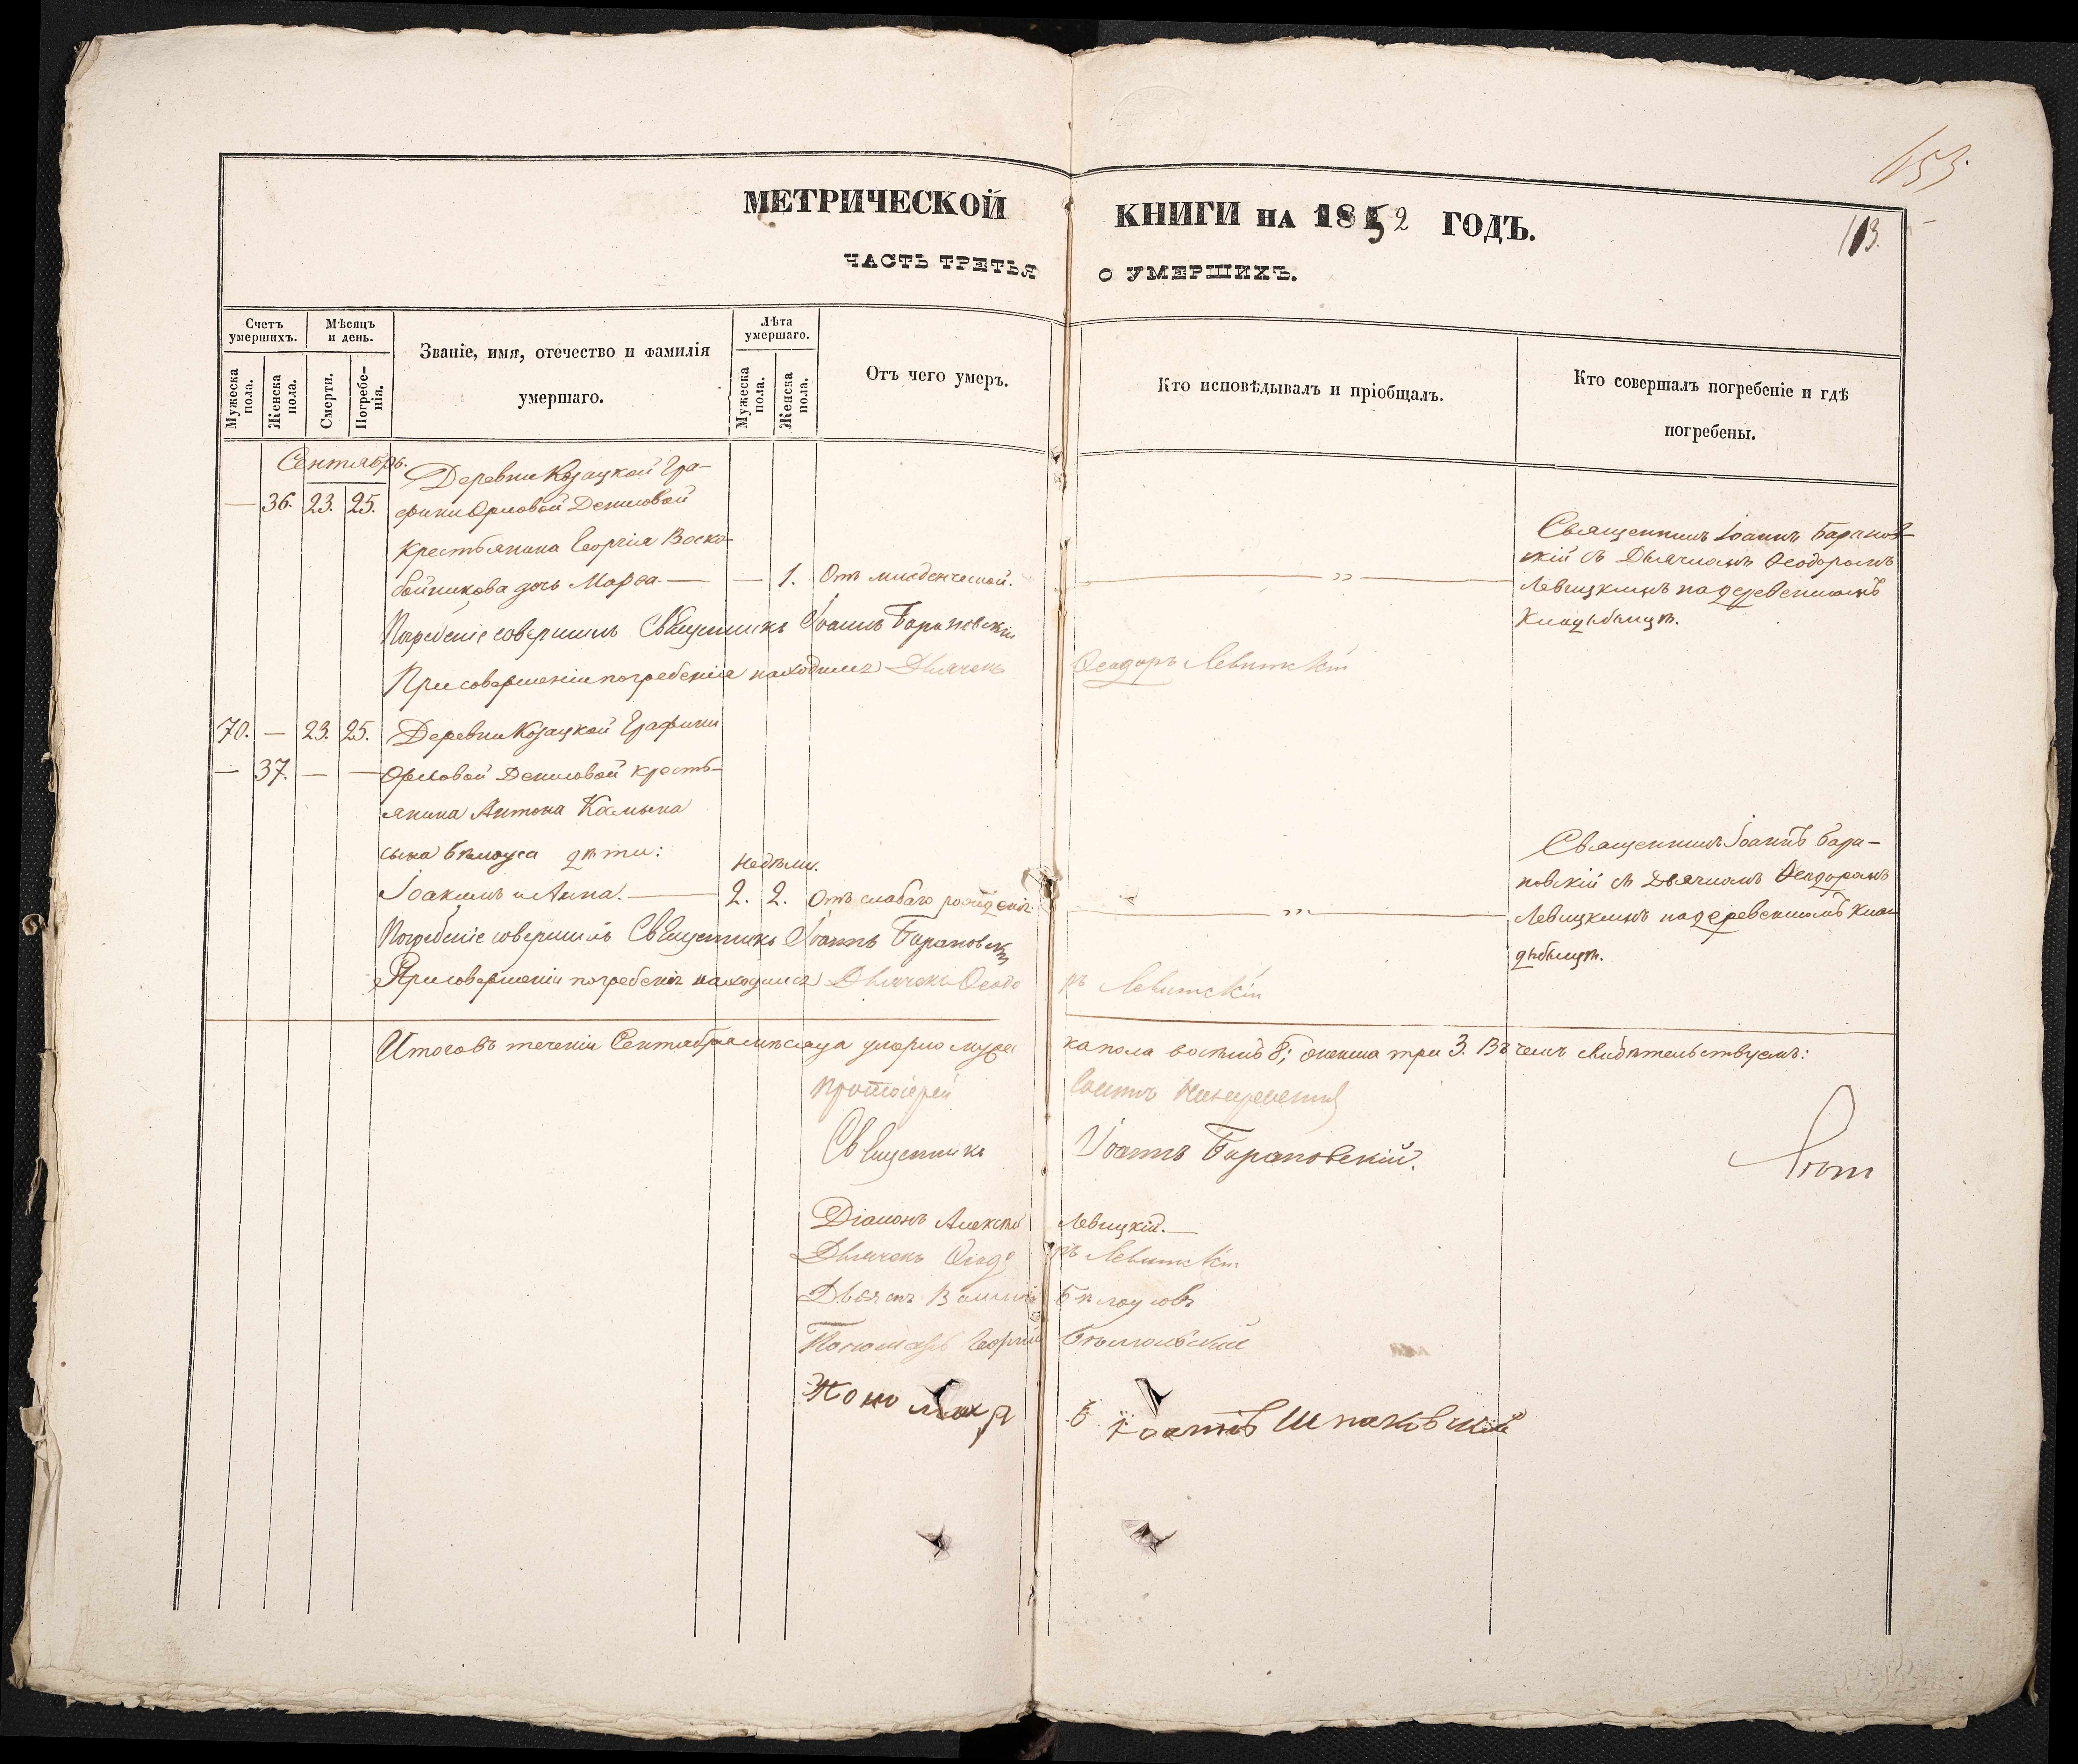 653.
МЕТРИЧЕСКОЙ КНИГИ НА 1852 ГОДЪ.
113.
ЧАСТЬ ТРЕТЬЯ О УМЕРШИХЪ.
Счетъ умершихъ.
Мѣсяцъ и день.
Званіе, имя, отечество и фамилія умершаго.
Лѣта умершаго.
Отъ чего умеръ.
Кто исповѣдывалъ и пріобщалъ.
Кто совершалъ погребеніе и гдѣ погребены.
Мужеска пола.
Женска пола.
Смерти.
Погребенія.
Мужеска пола.
Женска пола.
Сентябрь.
Деревни Козацкой Гра-
— 36. 23. 25. фини Орловой Денисовой
крестьянина Георгія Воско-
бойникова дочь Марфа. — — 1. Отъ младенческой. — " —
Священникъ Іоаннъ Баранов-
скій съ Дьячкомъ Ѳеодоромъ
Левицкимъ на деревенскомъ
кладьбищѣ.
Погребеніе совершилъ Священникъ Іоаннъ Барановскій
При совершеніи погребенія находился Дьячекъ Ѳеодоръ Левитскій
70. — 23. 25. Деревни Козацкой Графини
— 37. — — Орловой Денисовой кресть-
янина Антона
сына Бѣлоуса дѣти: недѣли.
Іоакимъ и Анна. — 2. 2. Отъ слабаго рожденія. — " —
Священникъ Іоаннъ Бара-
новскій съ Дьячкомъ Ѳеодоромъ
Левицкимъ на деревенскомъ кла-
дьбищѣ.
Погребеніе совершилъ Священникъ Іоаннъ Барановскій
При совершеніи погребенія находился Дьячекъ Ѳеодоръ Левитскій
Итого въ теченіи Сентября мѣсяца умерло мужеска пола восемь 8; женска три 3. Въ чемъ свидѣтельствуемъ:
Протоіерей
Священникъ Іоаннъ Барановскій.
Діаконъ Алексѣй Левицкій. —
Дьячекъ Ѳеодоръ Левитскій
Дьячекъ Василій Бѣлоусовъ
Пономарь Георгій
Пономарь Іоаннъ Шпаковскій